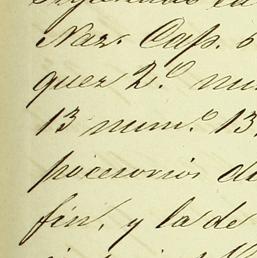 Naz. Cap. 5
quez 2.º nu
13 num.º 13.
pocesorios de
fin, y la de